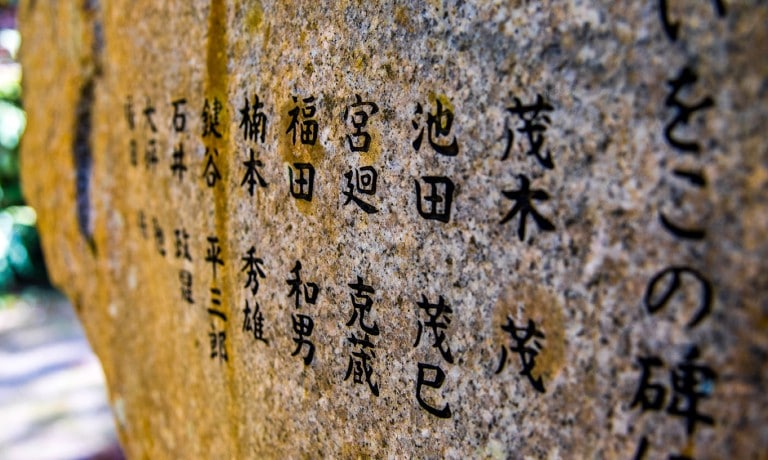 いをこの碑に
茂木 茂
池田 茂巳
宮廻 克蔵
福田 和男
楠本 秀雄
鍵谷 平三郎
石井